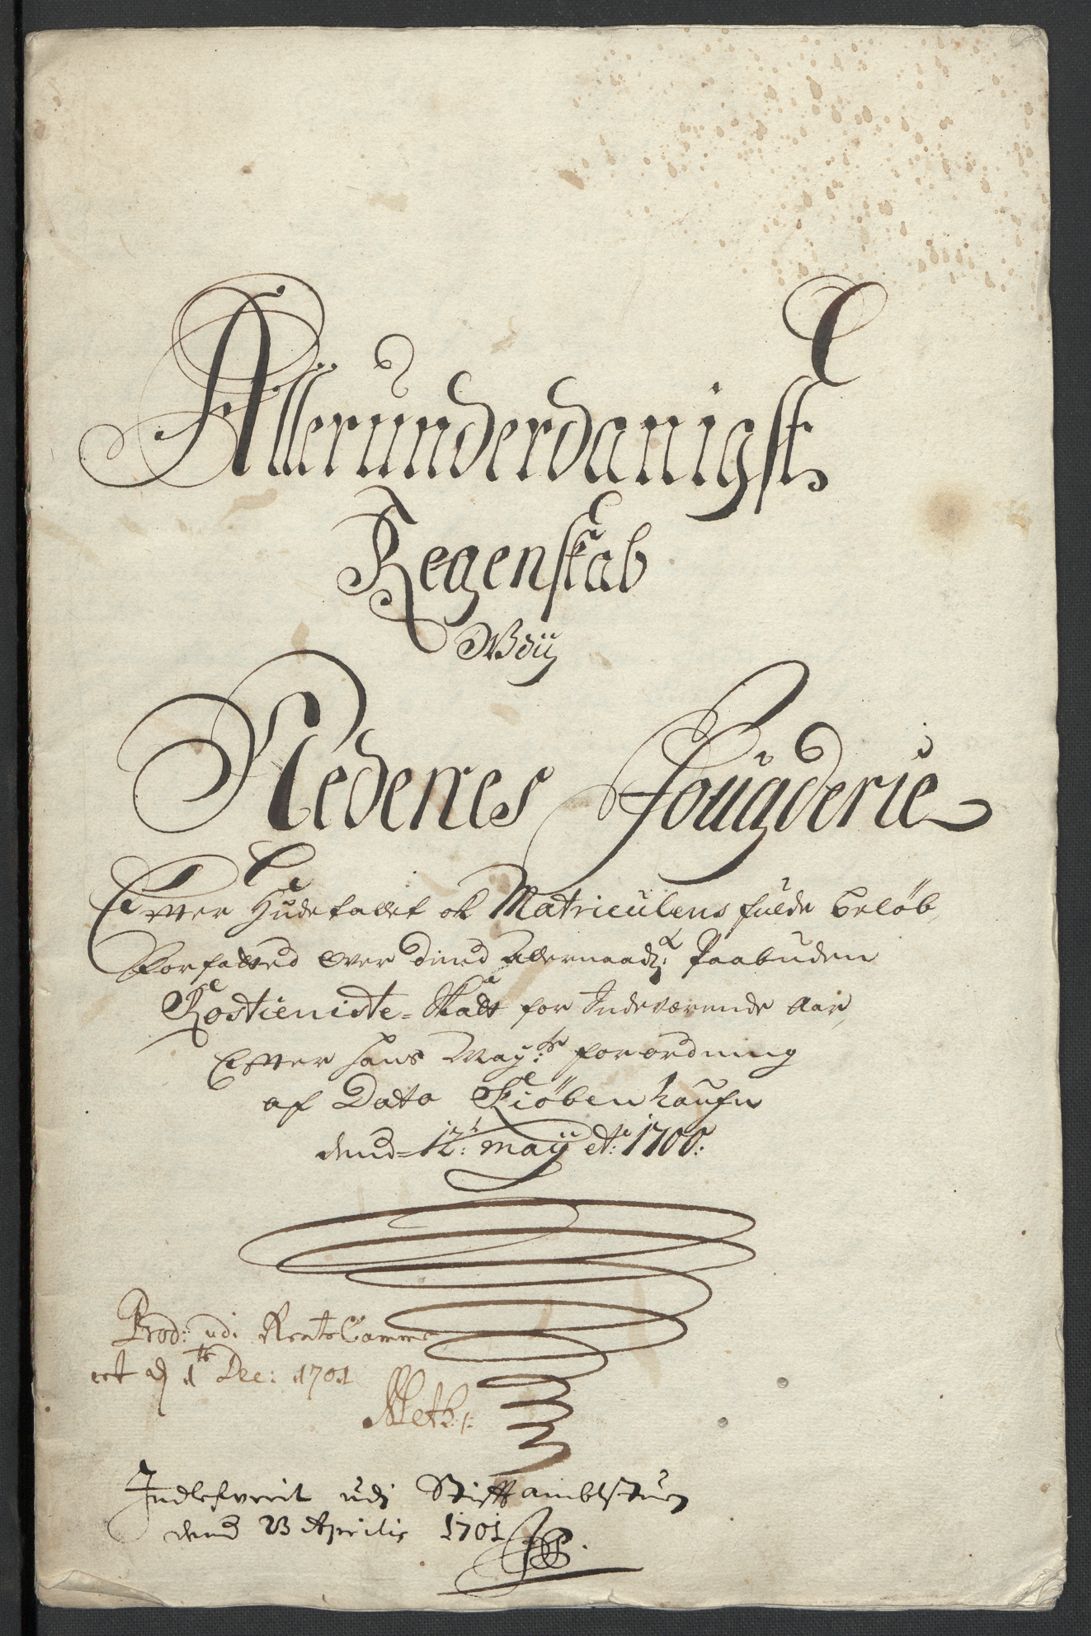 Allerunderdanigst
Regenskab
Wdij
Nedenes Fougderie
Effter Hudetallet oc Matriculens fulde beløb,
Forfatted over dend allernaadst: Paabuden
Kostieniste-Skatt for Indeværende Aar,
Effter Hans May:ts forordning
af Dato Kiøbenhaufn
dend=12: maij Ao: 1700:
Prod: udi RenteCamme
ret d 1te Dec: 1701
Indlefverit udj Stifftambtstuen
dend 23 Aprilis 1701